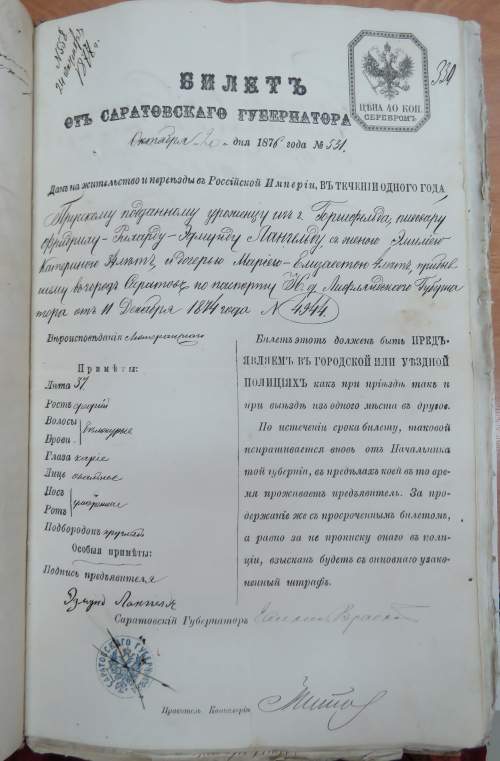 № 5558
330
ЦѢНА 40 КОП.
СЕРЕБРОМЪ.
БИЛЕТЪ
ОТЪ САРАТОВСКАГО ГУБЕРНАТОРА
Октября дня 1876 года № 531.
Данъ на жительство и переѣзды въ Россійской Имперіи, ВЪ ТЕЧЕНІИ ОДНОГО ГОДА
Прусскому подданному уроженцу изъ г.
Рихарду Лангельду съ женою Эмиліею
Катериною и дочерью Маріею Елизаветою прибыв
шему въ городъ Саратовъ по паспорту Лифляндскаго Губерна
тора отъ 11 Декабря 1874 года № 4944.
Вѣроисповѣданія Лютеранскаго
Примѣты:
Лѣта 37
Ростъ средній
Волосы
Брови
Глаза каріе
Лице
Носъ умѣренные
Ротъ
Подбородокъ круглый
Особыя примѣты:
Подпись предъявителя
Билетъ этотъ долженъ быть ПРЕДЪ-
ЯВЛЯЕМЪ ВЪ ГОРОДСКОЙ ИЛИ УѢЗДНОЙ
ПОЛИЦІЯХЪ какъ при пріѣздѣ такъ и
при выѣздѣ изъ одного мѣста въ другое.
По истеченіи срока билету, таковой
испрашивается вновь отъ Начальника
той губерніи, въ предѣлахъ коей въ то вре-
мя проживаетъ предъявитель. За про-
держаніе же съ просроченнымъ билетомъ,
а равно за не прописку онаго въ поли-
ціи, взысканъ будетъ съ виновнаго узако-
ненный штрафъ.
Саратовскій Губернаторъ
Правитель Канцеляріи